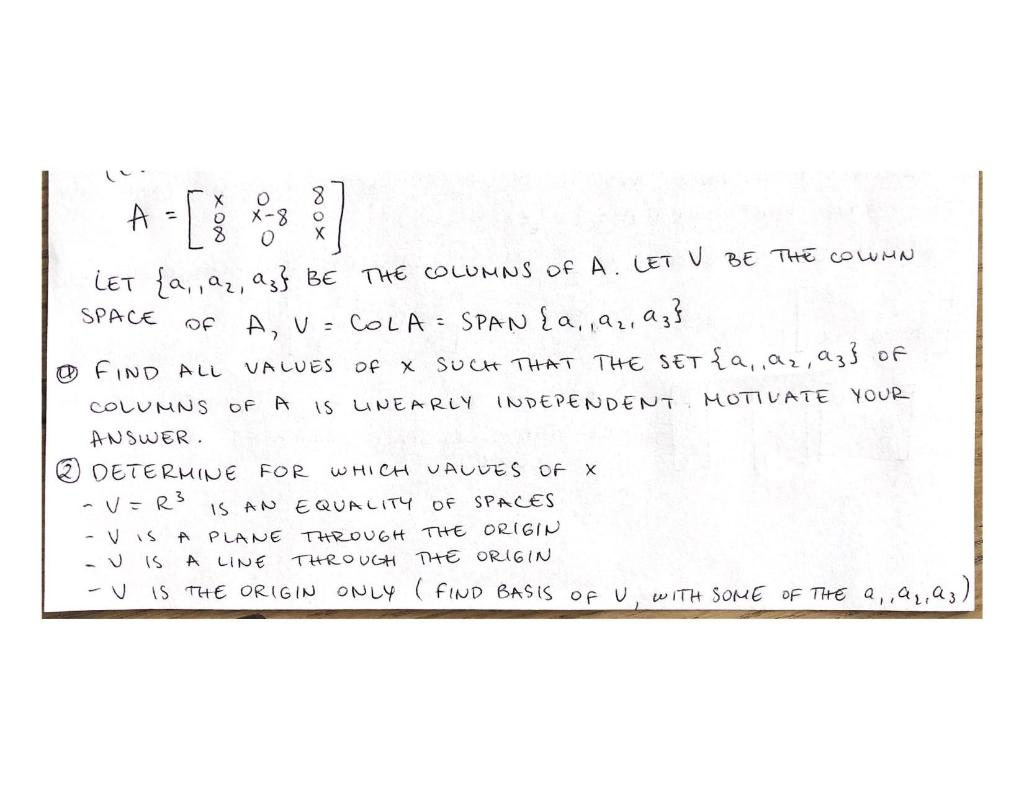 A = [ x 0 8
0 x-8 0
8 0 x ]
LET {a₁, a₂, a₃} BE THE COLUMNS OF A. LET V BE THE COLUMN
SPACE OF A, V = COL A = SPAN {a₁, a₂, a₃}
① FIND ALL VALUES OF X SUCH THAT THE SET {a₁, a₂, a₃} OF
COLUMNS OF A IS LINEARLY INDEPENDENT. MOTIVATE YOUR
ANSWER.
② DETERMINE FOR WHICH VALUES OF X
- V = R³ IS AN EQUALITY OF SPACES
- V IS A PLANE THROUGH THE ORIGIN
- V IS A LINE THROUGH THE ORIGIN
- V IS THE ORIGIN ONLY (FIND BASIS OF V, WITH SOME OF THE a₁, a₂, a₃)